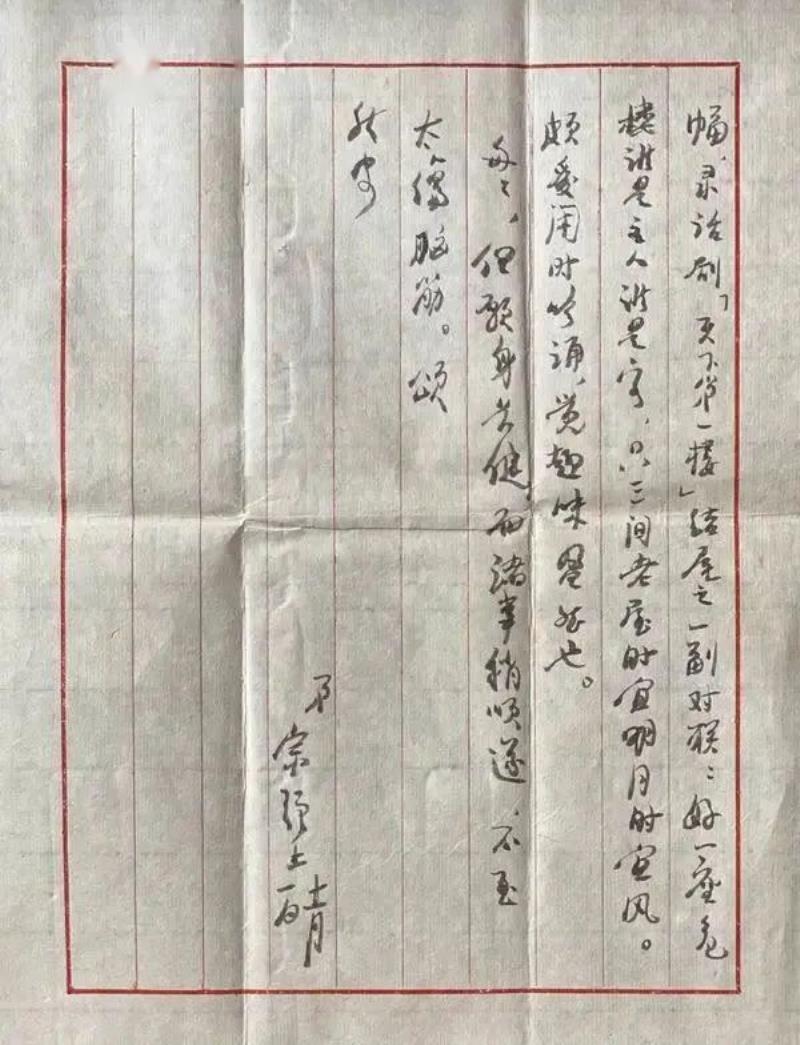 幅，录话剧「天下第一楼」结尾之一副对联：好一座危
楼谁是主人谁是客，只三间老屋时宜明月时宜风。
颇爱闲时吟诵，觉趣味盎然也。
匆匆，但愿身安健，而诸事稍顺遂，不至
太伤脑筋。颂
秋安
弟
宗 上
十月 日